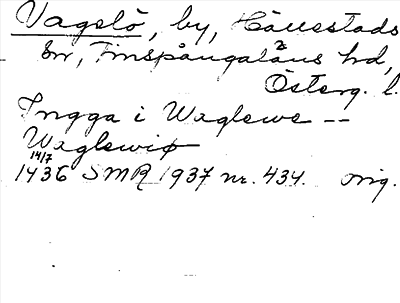 Vagelö, by, Hällestads
sn, Finspångaläns hd,
Österg. l.
Ingga i Waglewe --
Waglewiø
14/7
1436 SMR 1937 nr. 434. orig.